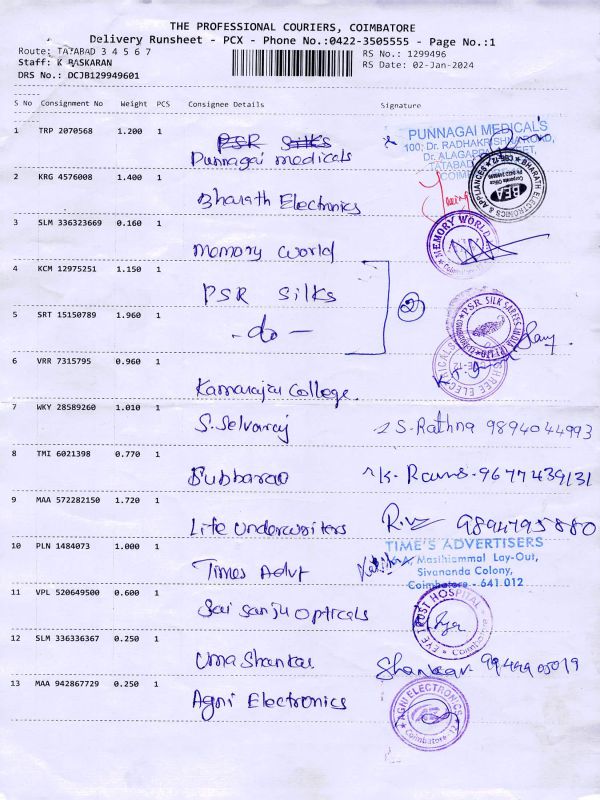 THE PROFESSIONAL COURIERS, COIMBATORE
Delivery Runsheet - PCX - Phone No.:0422-3505555 - Page No.:1
Route: TATABAD 3 4 5 6 7
Staff: K BASKARAN
DRS No.: DCJB129949601
RS No.: 1299496
RS Date: 02-Jan-2024
S No Consignment No Weight PCS Consignee Details Signature
1 TRP 2070568 1.200 1 PSR Silks
Punnagai medicals
PUNNAGAI MEDICAL'S
100, Dr. RADHAKRISHNA ROAD,
Dr. ALAGAPPA STREET,
TATABAD
COIMB
2 KRG 4576008 1.400 1 Bharath Electronics
BHARATH ELECTRONICS & APPLIANCES
BEA
Corporate Office
CBE-12
3 SLM 336323669 0.160 1 memory world
MEMORY WORLD
Coimbatore
4 KCM 12975251 1.150 1 PSR Silks
2
5 SRT 15150789 1.960 1 - do -
P.S.R. SILK SAREES INDIA
6 VRR 7315795 0.960 1 Kamaraju College.
7 WKY 28589260 1.010 1 S. Selvaraj S. Rathna 9894044993
8 TMI 6021398 0.770 1 Subbarao 9677439131
9 MAA 572282150 1.720 1 Life Underwriters 9894795880
10 PLN 1484073 1.000 1 Times Advt
TIME'S ADVERTISERS
Masthiammal Lay-Out,
Sivananda Colony,
Coimbatore - 641 012
11 VPL 520649500 0.600 1 Sai Sanju Opticals
EYE FOST HOSPITAL
Coimbatore
12 SLM 336336367 0.250 1 Uma Shankar Shankar 9944905019
13 MAA 942867729 0.250 1 Agni Electronics
AGNI ELECTRONICS
Coimbatore-12